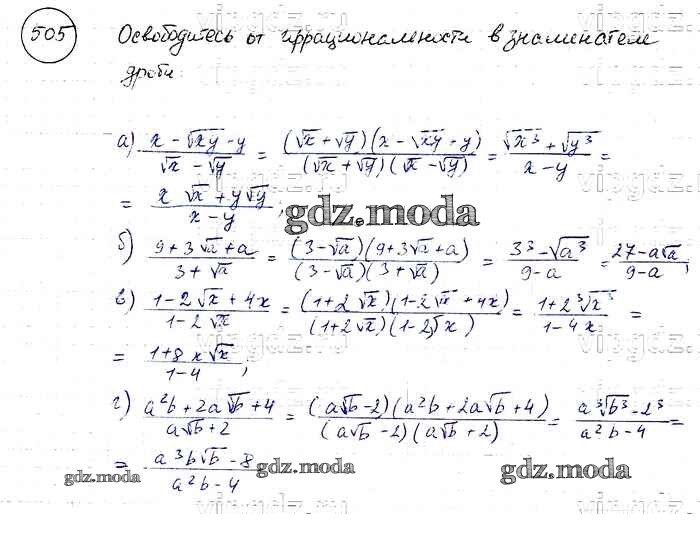 505 Освободитесь от иррациональности в знаменателе
дроби:
а) \frac{x - \sqrt{xy} - y}{\sqrt{x} - \sqrt{y}} = \frac{(\sqrt{x} + \sqrt{y})(x - \sqrt{xy} + y)}{(\sqrt{x} + \sqrt{y})(\sqrt{x} - \sqrt{y})} = \frac{\sqrt{x^3} + \sqrt{y^3}}{x - y} =
= \frac{x\sqrt{x} + y\sqrt{y}}{x - y};
gdz.moda
б) \frac{9 + 3\sqrt{a} + a}{3 + \sqrt{a}} = \frac{(3 - \sqrt{a})(9 + 3\sqrt{a} + a)}{(3 - \sqrt{a})(3 + \sqrt{a})} = \frac{3^3 - \sqrt{a^3}}{9 - a} = \frac{27 - a\sqrt{a}}{9 - a};
в) \frac{1 - 2\sqrt{x} + 4x}{1 - 2\sqrt{x}} = \frac{(1 + 2\sqrt{x})(1 - 2\sqrt{x} + 4x)}{(1 + 2\sqrt{x})(1 - 2\sqrt{x})} = \frac{1 + 2^3\sqrt{x^3}}{1 - 4x} =
= \frac{1 + 8x\sqrt{x}}{1 - 4};
г) \frac{a^2b + 2a\sqrt{b} + 4}{a\sqrt{b} + 2} = \frac{(a\sqrt{b} - 2)(a^2b + 2a\sqrt{b} + 4)}{(a\sqrt{b} - 2)(a\sqrt{b} + 2)} = \frac{a^3\sqrt{b^3} - 2^3}{a^2b - 4} =
= \frac{a^3b\sqrt{b} - 8}{a^2b - 4}
gdz.moda
gdz.moda